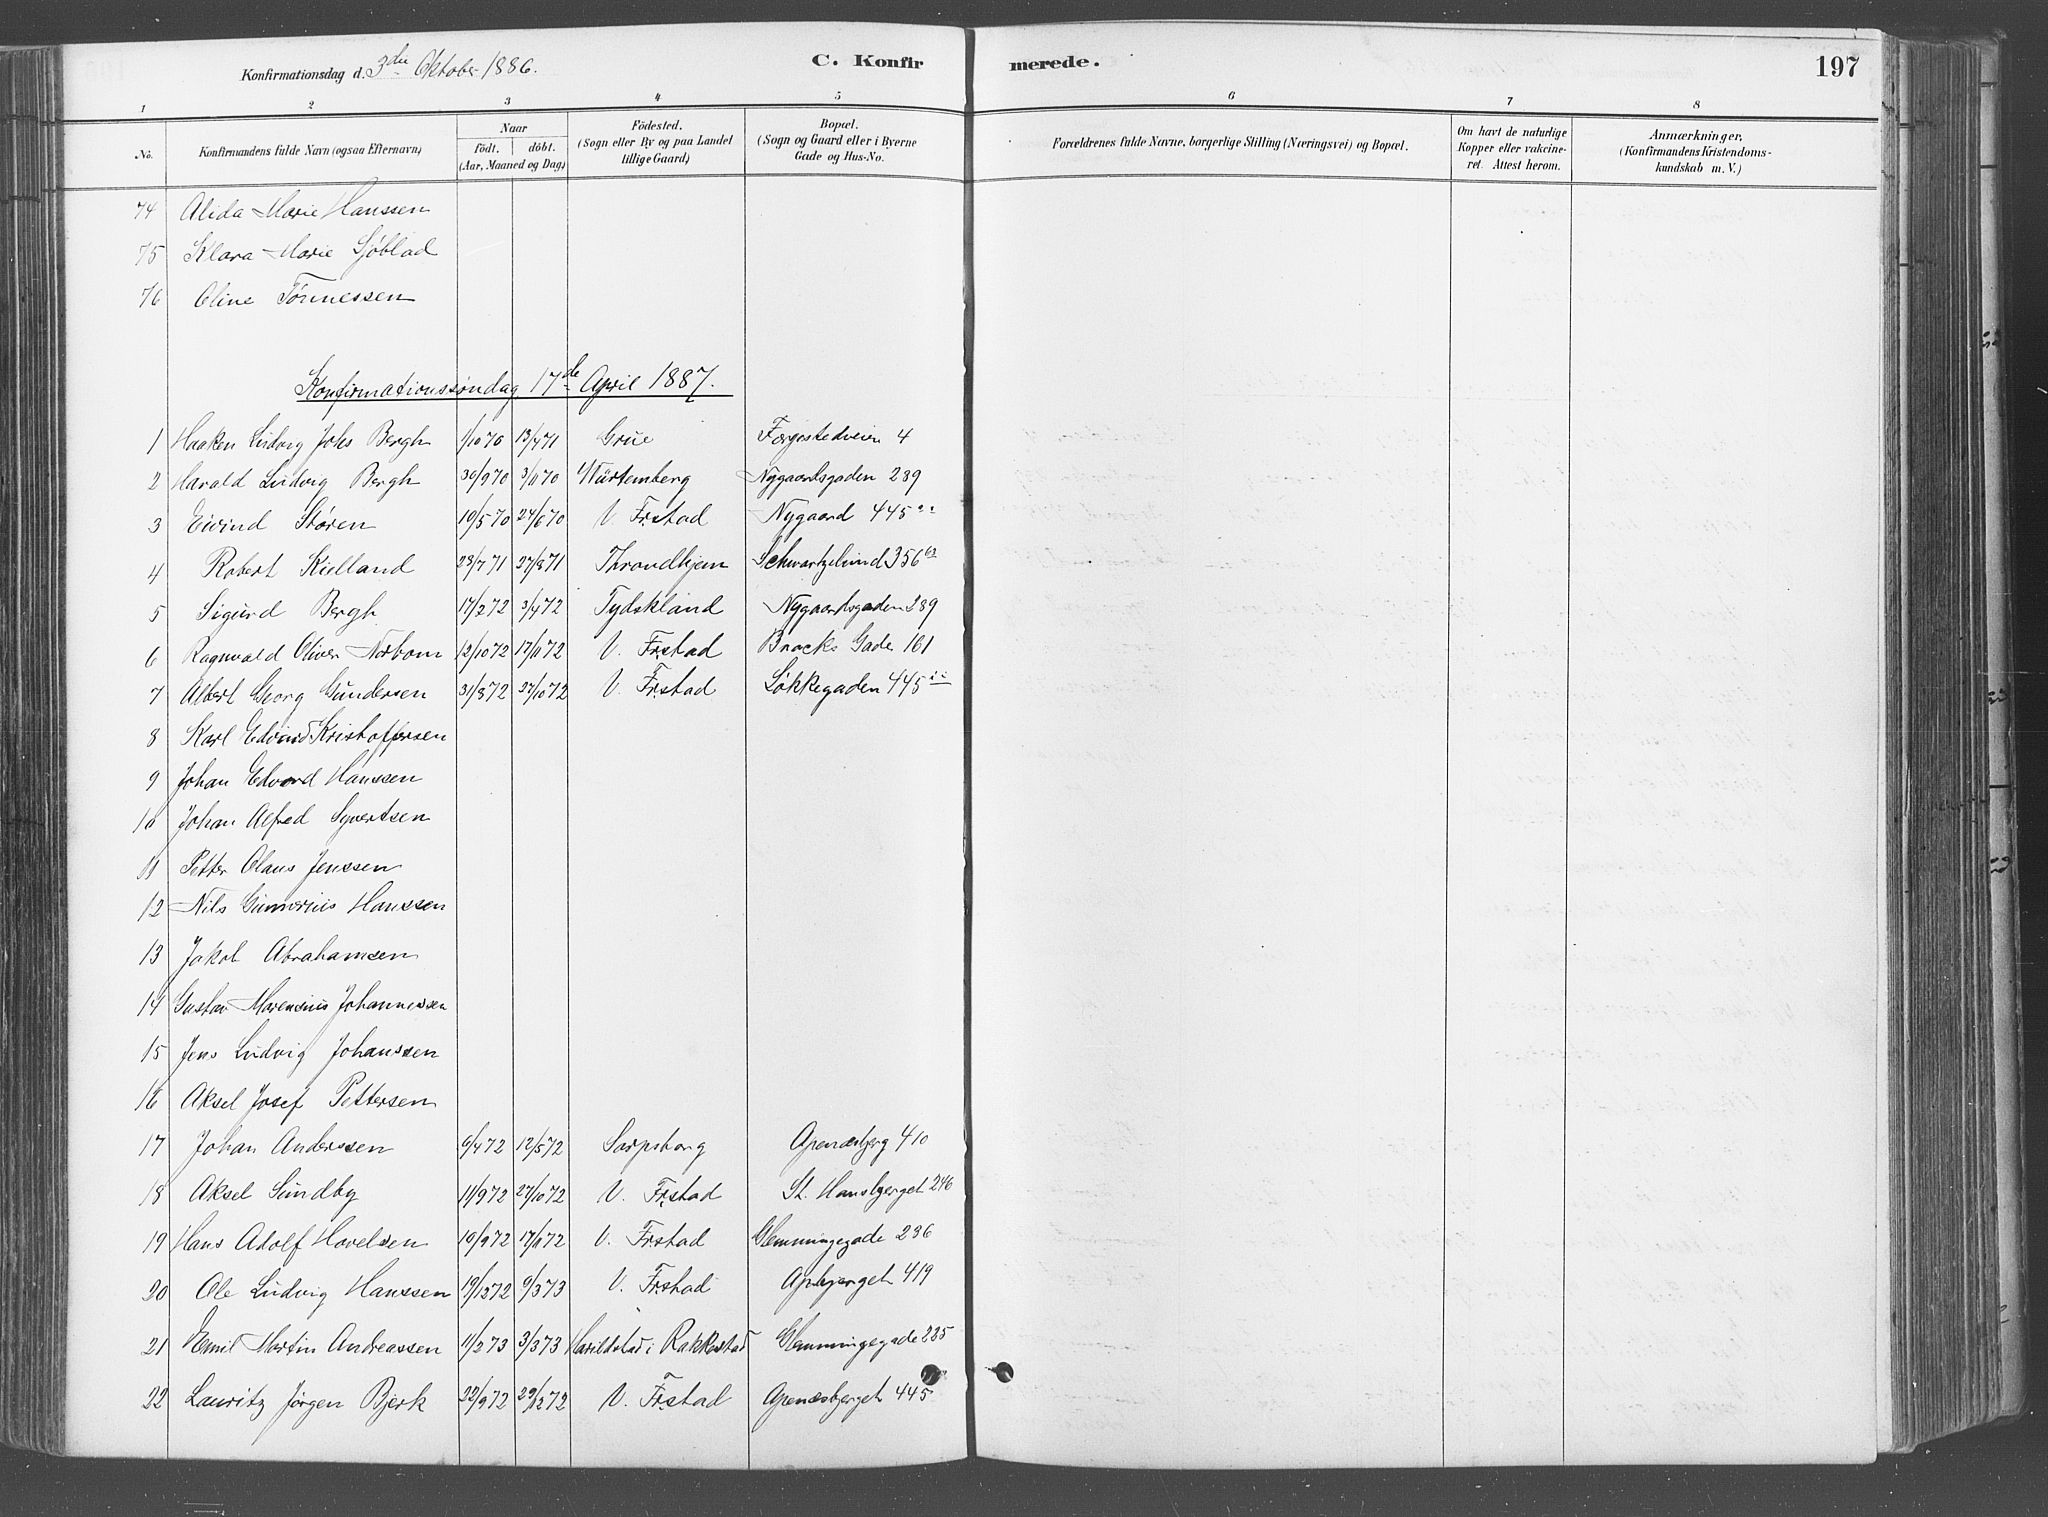 Konfirmationsdag d. 3die Oktober 1886.
C. Konfirmerede.
197
1 2 3 4 5 6 7 8
No. Konfirmandens fulde Navn (ogsaa Efternavn) Naar födt. döbt. (Aar, Maaned og Dag) Födested. (Sogn eller By og paa Landet tillige Gaard) Bopæl. (Sogn og Gaard eller i Byerne Gade og Hus-No. Forældrenes fulde Navne, borgerlige Stilling (Næringsvei) og Bopæl. Om havt de naturlige Kopper eller vakcineret. Attest herom. Anmærkninger, (Konfirmandens Kristendomskundskab m. V.)
74 Alida Marie Hanssen
75 Klara Marie Sjøblad
76 Oline Tørmessen
Konfirmationssøndag 17de April 1887.
1 Haaken Ludvig Johs Bergh 1/10 70 13/4 71 Grue Færgestedveien 4
2 Harald Ludvig Bergh 30/9 70 3/11 70 Würtemberg Nygaardsgaden 289
3 Eivind Støren 10/5 70 24/6 70 V. Frstad Nygaard 445
4 Robert Kielland 23/7 71 27/8 71 Throndhjem Schwartzelund 356
5 Sigurd Bergh 17/2 72 3/4 72 Tydskland Nygaardsgaden 289
6 Ragnvald Oliver Norbom 12/10 72 17/11 72 V. Frstad Brocks Gade 161
7 Albert Georg Gundersen 31/8 72 27/10 72 V. Frstad Løkkegaden 445
8 Karl Edvind Kristoffersen
9 Johan Edvard Hanssen
10 Johan Alfred Syvertsen
11 Petter Olaus Jenssen
12 Nils Gunerius Hanssen
13 Jakob Abrahamsen
14 Gustav Marensius Johannessen
15 Jens Ludvig Johanssen
16 Aksel Josef Pettersen
17 Johan Anderssen 6/4 72 12/5 72 Sarpsborg Apenæsbjerg 410
18 Aksel Sundby 11/9 72 27/10 72 V. Frstad St. Hansbjerget 246
19 Hans Adolf Hovelsen 10/9 72 17/11 72 V. Frstad Glemmingegade 236
20 Ole Ludvig Hanssen 19/12 72 9/3 73 V. Frstad Apbjerget 419
21 Emil Martin Andreassen 11/2 73 3/3 73 Harildstad i Rakkestad Glemmingegade 225
22 Lauritz Jørgen Bjerk 22/9 72 29/12 72 V. Frstad Apenæsbjerget 445